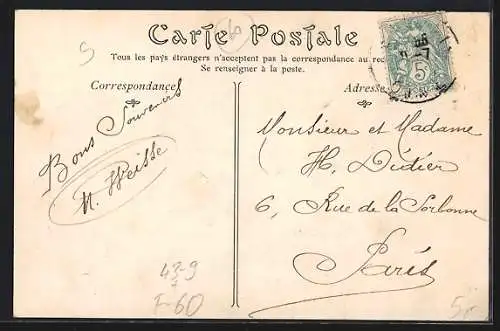 Carte Postale
Tous les pays étrangers n'acceptent pas la correspondance au rec
Se renseigner à la poste.
Correspondance
Adresse
Bons Souvenirs
N. Weisse
Monsieur et Madame
H. Didier
6, Rue de la Sorbonne
Paris
5
6
F-60